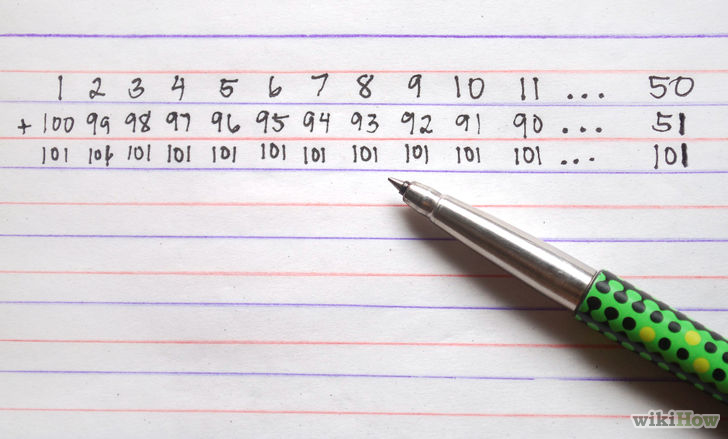 1 2 3 4 5 6 7 8 9 10 11 ... 50
+ 100 99 98 97 96 95 94 93 92 91 90 ... 51
101 101 101 101 101 101 101 101 101 101 101 ... 101
wikiHow